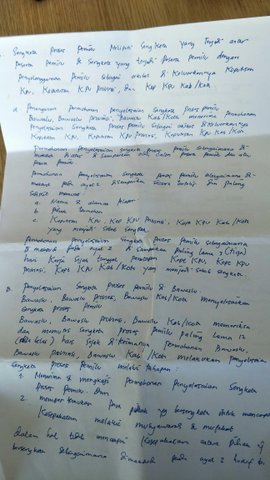 Sengketa proses pemilu meliputi sengketa yang terjadi antar
peserta pemilu & sengketa yang terjadi peserta pemilu dengan
penyelenggara pemilu sebagai akibat di keluarkannya keputusan
KPU, Keputusan KPU Provinsi, dan Kep KPU Kab/Kota
Permohonan penyelesaian sengketa proses pemilu
Bawaslu, Bawaslu Provinsi, Bawaslu Kab/Kota menerima permohonan
penyelesaian sengketa proses pemilu sebagai akibat dikeluarkannya
Keputusan KPU, Keputusan KPU Provinsi, Keputusan KPU Kab/Kota
Permohonan penyelesaian sengketa proses pemilu sebagaimana di-
maksud diatas & disampaikan oleh calon peserta pemilu dan atau
peserta pemilu
Permohonan penyelesaian sengketa proses pemilu sebagaimana di-
maksud pada ayat 2 disampaikan secara tertulis dan paling
sedikit memuat
a. Nama & alamat
b. Pihak termohon
c. Keputusan KPU, Kep KPU Provinsi, Kep KPU Kab/Kota
yang menjadi sebab sengketa
Permohonan penyelesaian sengketa proses pemilu sebagaimana
di maksud pada ayat 2 di sampaikan paling lama 3 (Tiga)
hari kerja sejak tanggal penetapan Kep KPU, Kep KPU
Provinsi, Kep KPU Kab/Kota yang menjadi sebab sengketa
B. penyelesaian sengketa proses pemilu di Bawaslu.
Bawaslu, Bawaslu Provinsi, Bawaslu Kab/Kota menyelesaikan
sengketa proses pemilu
Bawaslu, Bawaslu Provinsi, Bawaslu Kab/Kota memeriksa
dan memutus sengketa proses pemilu paling lama 12
(dua belas) hari sejak di terimanya permohonan Bawaslu,
Bawaslu provinsi, Bawaslu Kab/Kota melakukan penyelesaian
sengketa proses pemilu melalui tahapan:
1. Menerima & mengkaji permohonan penyelesaian sengketa
proses pemilu: Dan
2. mempertemukan para pihak yg bersengketa untuk mencapai
kesepakatan melalui musyawarah & mufakat
dalam hal tidak mencapai kesepakatan antara pihak yg
bersengketa sebagaimana dimaksud pada ayat 2 huruf